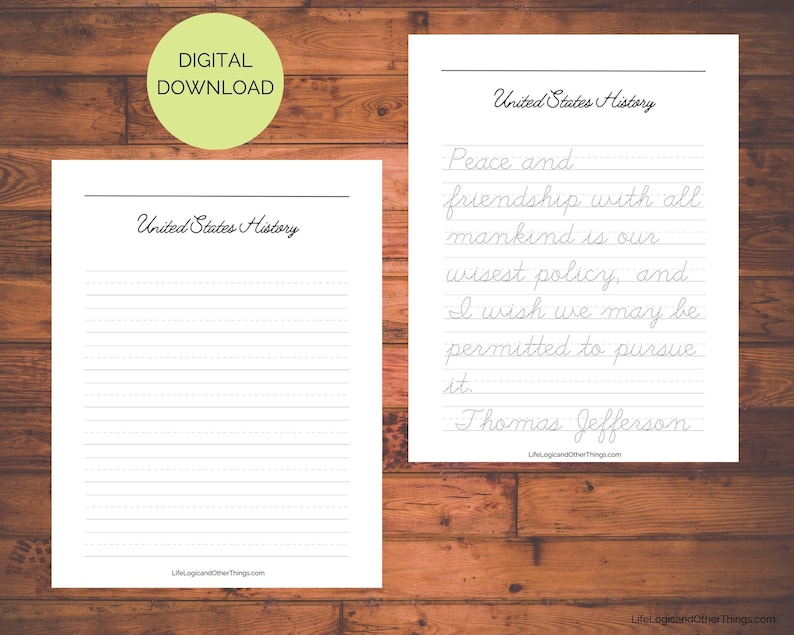 DIGITAL
DOWNLOAD
United States History
LifeLogicandOtherThings.com
United States History
Peace and
friendship with all
mankind is our
wisest policy, and
I wish we may be
permitted to pursue
it.
Thomas Jefferson
LifeLogicandOtherThings.com
LifeLogicandOtherThings.com